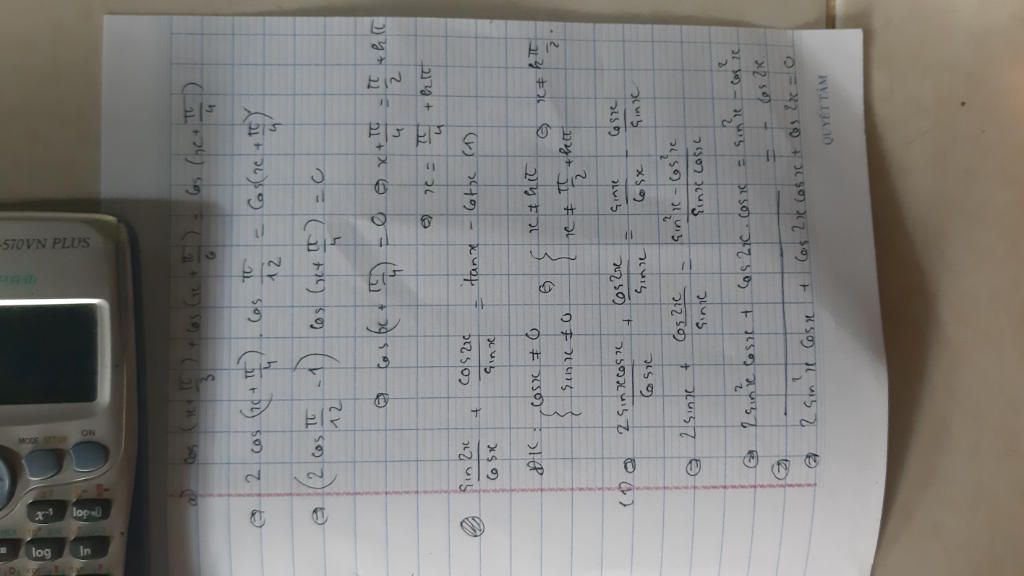 a) cos (x + π/3) + cos (x + π/6) = cos (x + π/4)
⇔ 2 cos (x + π/4) . cos π/12 = cos (x + π/4)
⇔ (2 cos π/12 - 1) cos (x + π/4) = 0
⇔ cos (x + π/4) = 0 ⇔ x + π/4 = π/2 + kπ
⇔ x = π/4 + kπ
sin2x/cosx + cos2x/sinx = tanx - cotx (1)
ĐK: { cosx ≠ 0 ⇔ { x ≠ kπ ⇔ x ≠ kπ/2.
{ sinx ≠ 0 { x ≠ π/2 + kπ
(1) ⇔ 2 sinx cosx/cosx + cos2x/sinx = sinx/cosx - cosx/sinx
⇔ 2 sinx + cos2x/sinx = sin²x - cos²x/sinx cosx
⇔ 2 sin²x cosx + cos2x . cosx = sin²x - cos²x
⇔ = - cos2x
⇔ 2 sin²x cosx + cos2x cosx + cos2x = 0
QUYẾT TÂM
-570VN PLUS
MODE SETUP
ON
x⁻¹
log
ln